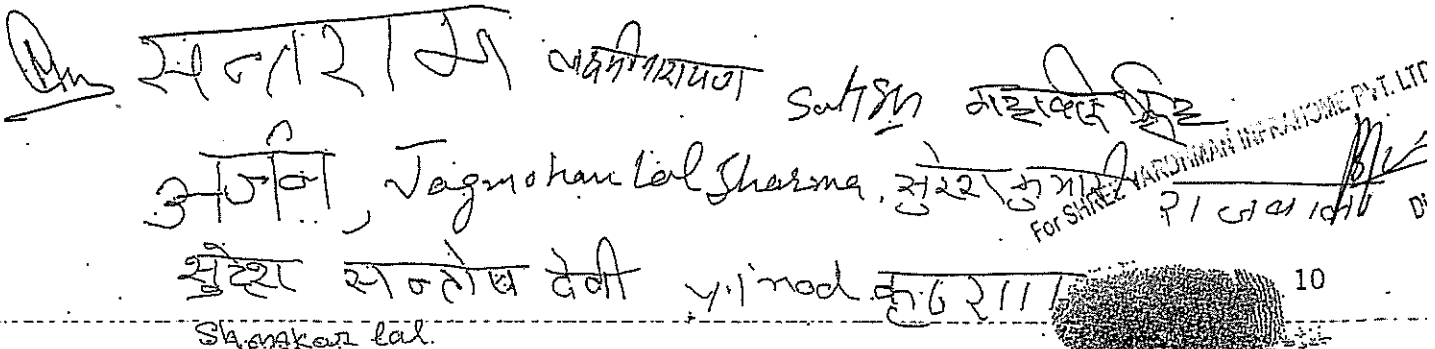 सन्तराम लक्ष्मीनारायण Satish महावीर सिंह
अर्जुन, Jagmohan Lal Sharma. सुरेश कुमार
For SHREE VARDHMAN INFRAHOME PVT. LTD
सुदेश सन्तोष देवी Vinod
10
Shankar lal.